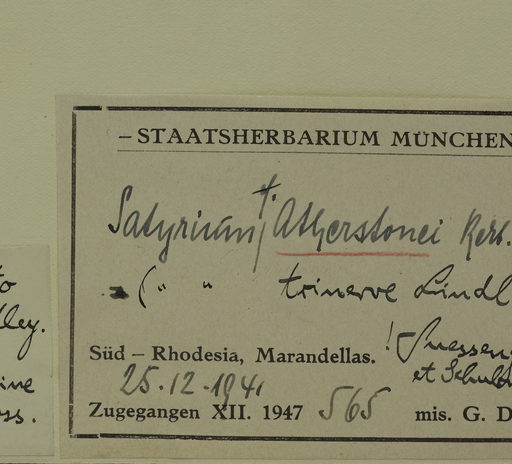 – STAATSHERBARIUM MÜNCHEN
Satyrium Atherstonei
( " " trinerve Lindl
Süd – Rhodesia, Marandellas. !
et
25.12.1941
Zugegangen XII. 1947 565 mis. G. D
to
ley.
ine
ss.